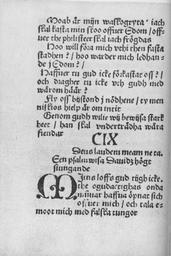 Moab är mijn waskogryta/ iach
skal kasta min skoo offuer Edom/ offuer
the philisteer skal iach frögdas
Hoo will föra mich vthi then fasta
stadhen? / hoo warder mich ledhandes
j Edom?
Haffuer tu gud icke förkastat oss? /
och dragher tu icke vth gudh med
wårom häär?
Fly oss bijstond j nödhene/ ty menniskios
hielp är om intit
Genom gudh wilie wij bewijsa starkheet/
han skal vndertrådha wåra
fiendar
CIX
Deus laudem meam ne ta.
Een psalm wisa Dauidz högt
siungande
Mijns loffs gud tijgh icke/
the ogudactighas onda
munnar haffua öpnat sich
offuer mich/ och tala emoot
mich med falska tungor